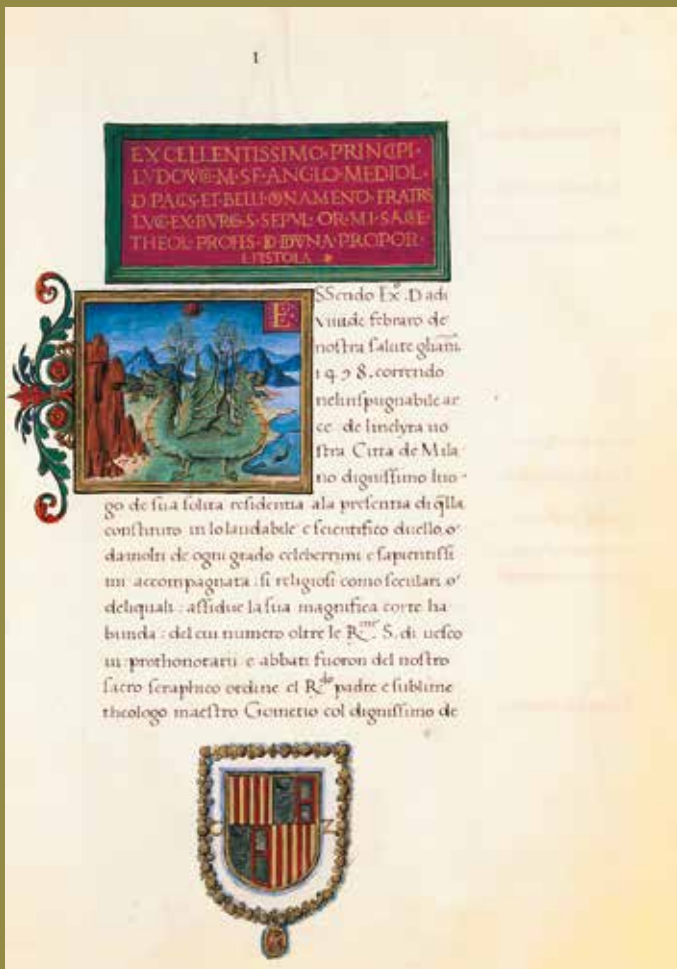 I
EXCELLENTISSIMO·PRINCIPI·
LVDOVIC·M·SF·ANGLO·MEDIOL·
D·PACIS·ET·BELLI·ORNAMENO·FRATRIS
LVC·EX·BVRG·S·SEPVL·OR·MI·SACE·
THEOL·PROFIS·DIVINA·PROPOR·
EPISTOLA
E
SSendo Exª. D adi
viiii de febraro de
nostra salute glianni
1498. correndo
nelinspugnabile ar
ce de linclyta uo
stra Citta de Mila
no dignissimo luo·
go de sua solita residentia ala presentia di qlla
constituto in lo laudabile e scientifico duello
damolti de ogni grado celeberrimi e sapientissi
mi accompagnata: si religiosi como seculari
deliquali: assidue la sua magnifica corte ha
bunda: del cui numero oltre le R.me S. di uesco
ui: prothonotarii e abbati fuoron del nostro
sacro seraphico ordine el R.do padre e sublime
theologo maestro Gometio col dignissimo de
C Z